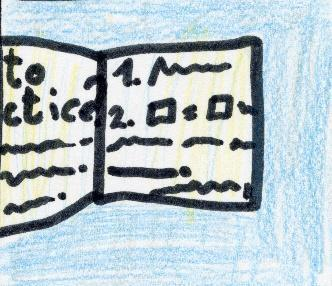 to
ctica
1.
2.